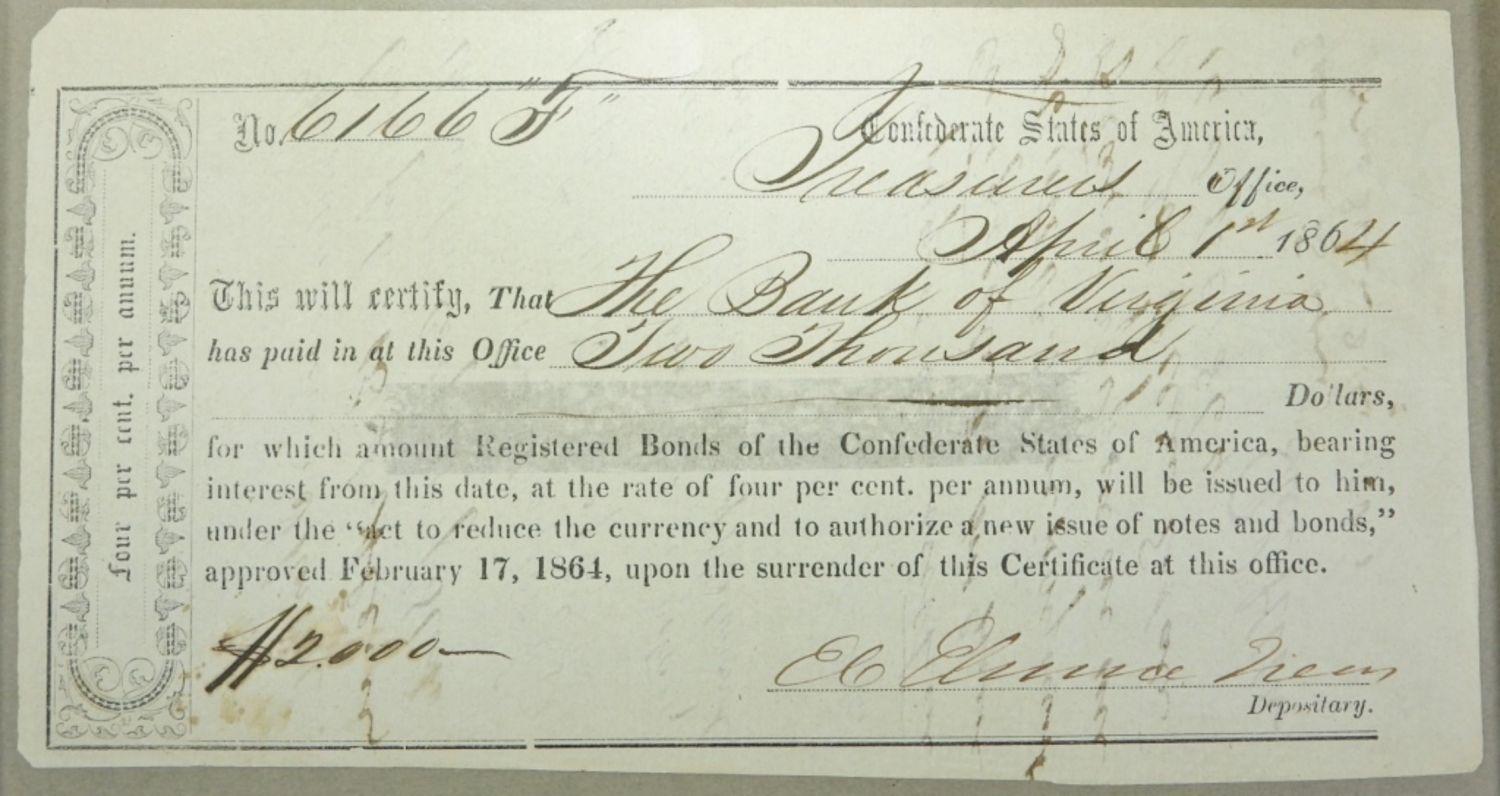 No. 6166 "F"
Confederate States of America,
Treasurer's Office,
April 1st 1864
This will certify, That The Bank of Virginia
has paid in at this Office Two Thousand
Dollars,
for which amount Registered Bonds of the Confederate States of America, bearing
interest from this date, at the rate of four per cent. per annum, will be issued to him,
under the "act to reduce the currency and to authorize a new issue of notes and bonds,"
approved February 17, 1864, upon the surrender of this Certificate at this office.
$2.000
E C Elmore Treasr
Depositary.
Four per cent. per annum.